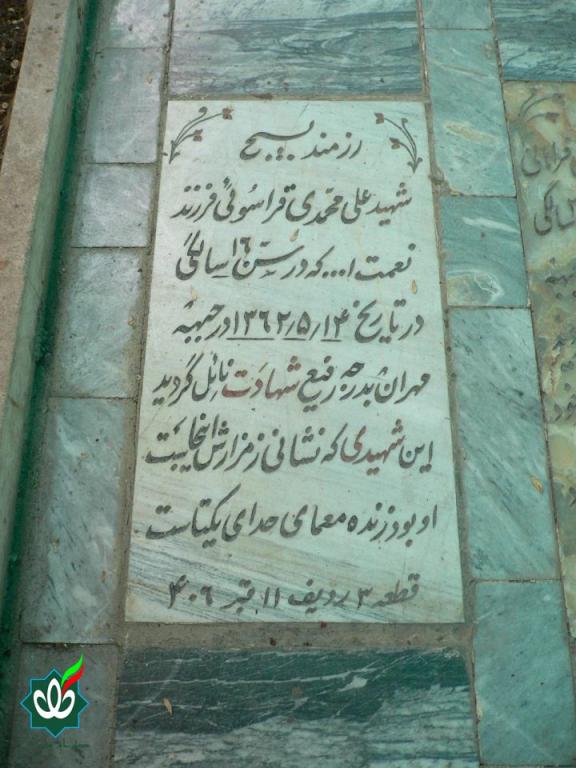 رزمنده بسیج
شهید علی محمدی قراسوئی فرزند
نعمت ا... که در سن ۱۶ سالگی
در تاریخ ۱۳۶۲٫۵٫۱۴ در جبهه
مهران بدرجه رفیع شهادت نائل گردید
این شهیدی که نشانی ز مزارش اینجاست
او بود زنده معمای خدای یکتاست
قطعه ۳ ردیف ۱۱ قبر ۴۰۶